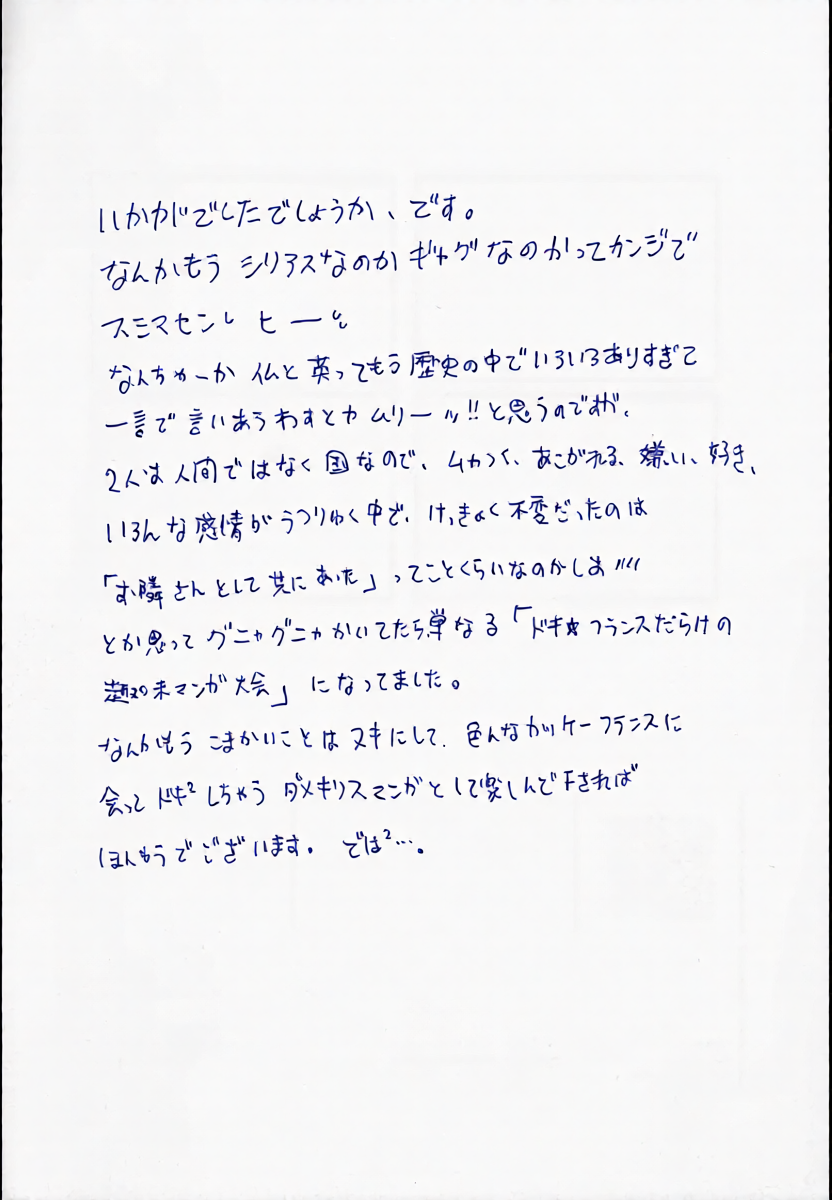 いかがでしたでしょうか、です。
なんかもう シリアスなのか ギャグなのかってカンジで
スミマセン ヒー
なんちゅーか 仏と英ってもう歴史の中でいろいろありすぎて
一言で言いあらわすとかムリーッ!!と思うのですが、
2人は人間ではなく国なので、ムカつく、あこがれる、嫌い、好き、
いろんな感情がうつりゆく中で、けっきょく不変だったのは
「お隣さんとして共にあった」ってことくらいなのかしら////
とか思って グニャグニャかいてたら単なる「ドキ☆フランスだらけの
趣味マンガ大会」になってました。
なんかもう こまかいことはヌキにして、色んなカッケーフランスに
会って ドキ²しちゃう ダメギリスマンガとして楽しんで下されば
ほんもうでございます。 では²…。